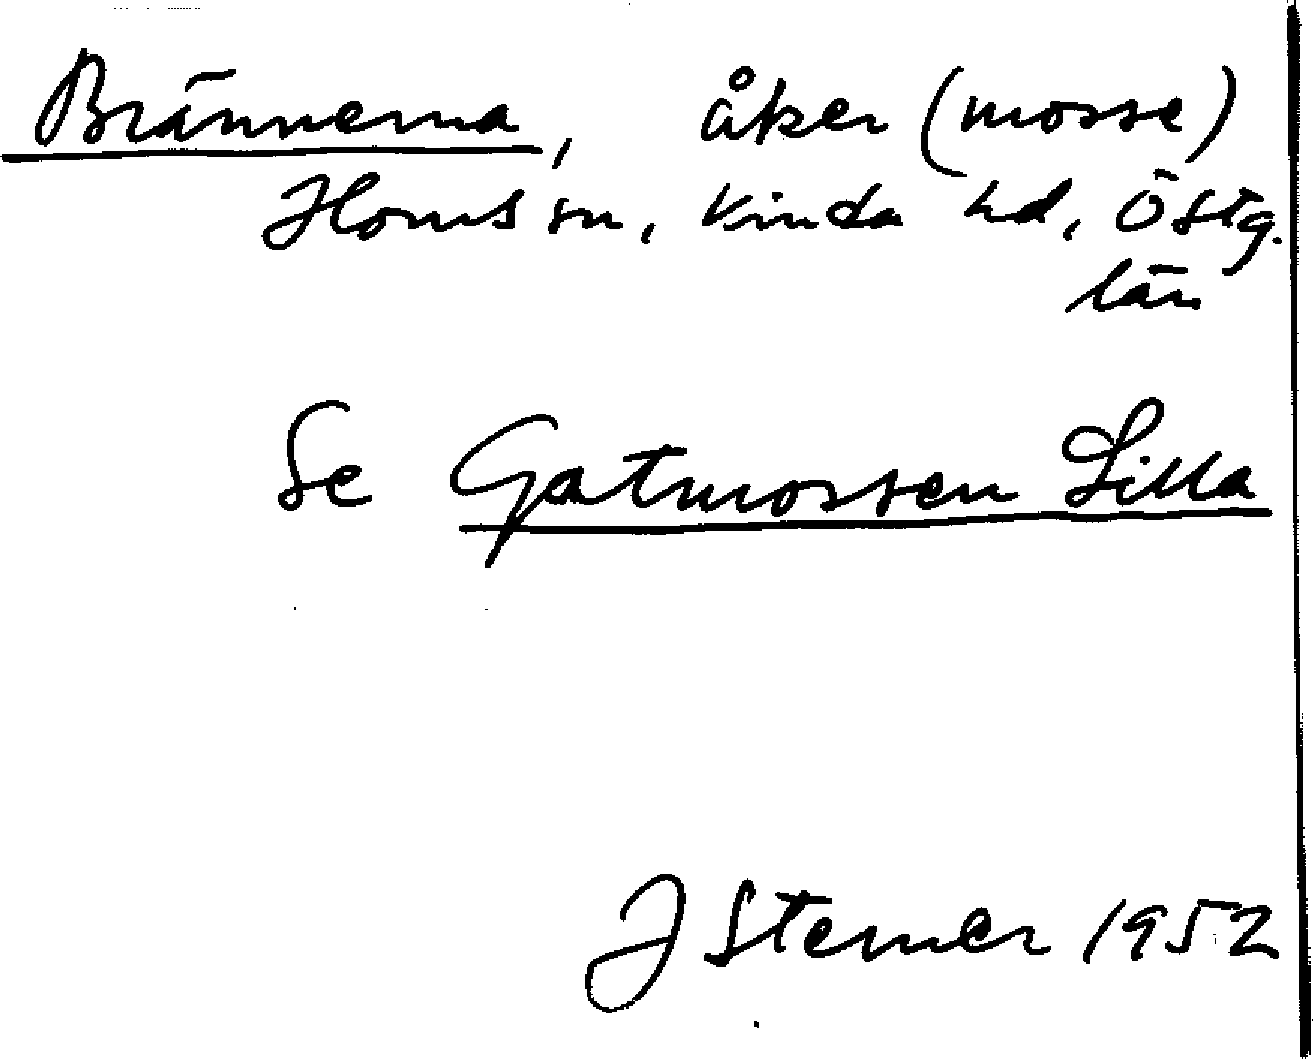 Brännerna, åker (mosse)
Horns sn, Kinda hd, Östg.
län
Se Gatmossen Lilla
J Sterner 1952